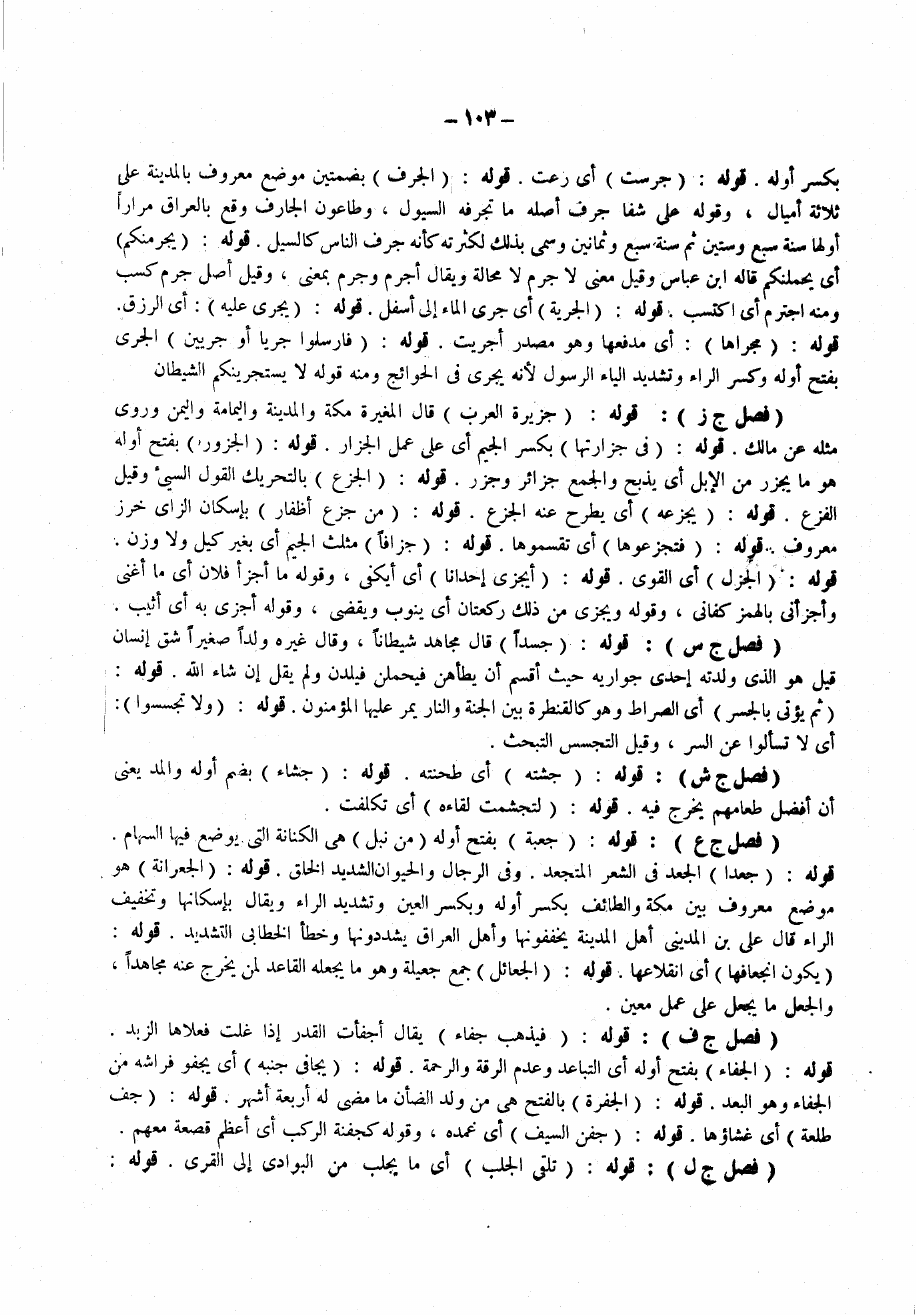 – ١٠٣ –
بكسر أوله . قوله : ( جرست ) أى رعت . قوله : ( الجرف ) بضمتين موضع معروف بالمدينة على
ثلاثة أميال ، وقوله على شفا جرف أصله ما تجرفه السيول ، وطاعون الجارف وقع بالعراق مراراً
أولها سنة سبع وستين ثم سنة سبع وثمانين وسمى بذلك لكثرته كأنه جرف الناس كالسيل . قوله : ( يجرمنكم)
أى يحملنكم قاله ابن عباس وقيل معنى لا جرم لا محالة ويقال أجرم وجرم بمعنى ، وقيل أصل جرم كسب
ومنه اجترم أى اكتسب . قوله : ( الجرية ) أى جرى الماء إلى أسفل . قوله : ( يجرى عليه ) : أى الرزق.
قوله : ( مجراها ) : أى مدفعها وهو مصدر أجريت . قوله : ( فارسلوا جريا أو جريين ) الجرى
بفتح أوله وكسر الراء وتشديد الياء الرسول لأنه يجرى فى الحوائج ومنه قوله لا يستجرينكم الشيطان
( فصل ج ز ) : قوله : ( جزيرة العرب ) قال المغيرة مكة والمدينة واليمامة واليمن وروى
مثله عن مالك . قوله : ( فى جزارتها ) بكسر الجيم أى على عمل الجزار . قوله : ( الجزور ) بفتح أوله
هو ما يجزر من الإبل أى يذبح والجمع جزائر وجزر . قوله : ( الجزع ) بالتحريك القول السىء وقيل
الفزع . قوله : ( يجزعه ) أى يطرح عنه الجزع . قوله : ( من جزع أظفار ) بإسكان الزاى خرز
معروف . قوله : ( فتجزعوها ) أى تقسموها . قوله : ( جزافاً ) مثلث الجيم أى بغير كيل ولا وزن .
قوله : ( الجزل ) أى القوى . قوله : ( أيجزى إحدانا ) أى أيكفى ، وقوله ما أجزأ فلان أى ما أغنى
وأجزأنى بالهمز كفانى ، وقوله ويجزى من ذلك ركعتان أى ينوب ويقضى ، وقوله أجزى به أى أثيب .
( فصل ج س ) : قوله : ( جسداً ) قال مجاهد شيطاناً ، وقال غيره ولداً صغيراً شق إنسان
قيل هو الذى ولدته إحدى جواريه حيث أقسم أن يطأهن فيحملن فيلدن ولم يقل إن شاء الله . قوله :
( ثم يؤتى بالجسر ) أى الصراط وهو كالقنطرة بين الجنة والنار يمر عليها المؤمنون . قوله : ( ولا تجسسوا ) :
أى لا تسألوا عن السر ، وقيل التجسس التبحث .
( فصل ج ش ) : قوله : ( جشته ) أى طحنته . قوله : ( جشاء ) بضم أوله والمد يعنى
أن أفضل طعامهم يخرج فيه . قوله : ( لتجشمت لقاءه ) أى تكلفت .
( فصل ج ع ) : قوله : ( جعبة ) بفتح أوله ( من نبل ) هى الكنانة التى يوضع فيها السهام .
قوله : ( جعدا ) الجعد فى الشعر المتجعد . وفى الرجال والحيوان الشديد الخلق . قوله : ( الجعرانة ) هو
موضع معروف بين مكة والطائف بكسر أوله وبكسر العين وتشديد الراء ويقال بإسكانها وتخفيف
الراء قال على بن المدينى أهل المدينة يخففونها وأهل العراق يشددونها وخطأ الخطابى التشديد . قوله :
( يكون انجعافها ) أى انقلاعها . قوله : ( الجعائل ) جمع جعيلة وهو ما يجعله القاعد لمن يخرج عنه مجاهداً ،
والجعل ما يجعل على عمل معين .
( فصل ج ف ) : قوله : ( فيذهب جفاء ) يقال أجفأت القدر إذا غلت فعلاها الزبد .
قوله : ( الجفاء ) بفتح أوله أى التباعد وعدم الرقة والرحمة . قوله : ( يجافى جنبه ) أى يجفو فراشه من
الجفاء وهو البعد . قوله : ( الجفرة ) بالفتح هى من ولد الضأن ما مضى له أربعة أشهر . قوله : ( جف
طلعة ) أى غشاؤها . قوله : ( جفن السيف ) أى غمده ، وقوله كجفنة الركب أى أعظم قصعة معهم .
( فصل ج ل ) : قوله : ( تلقى الجلب ) أى ما يجلب من البوادى إلى القرى . قوله :